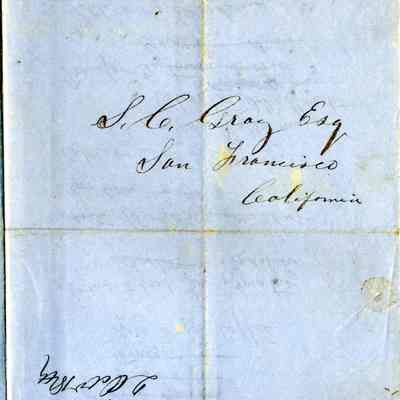 S. C. Gray Esq
San Francisco
California